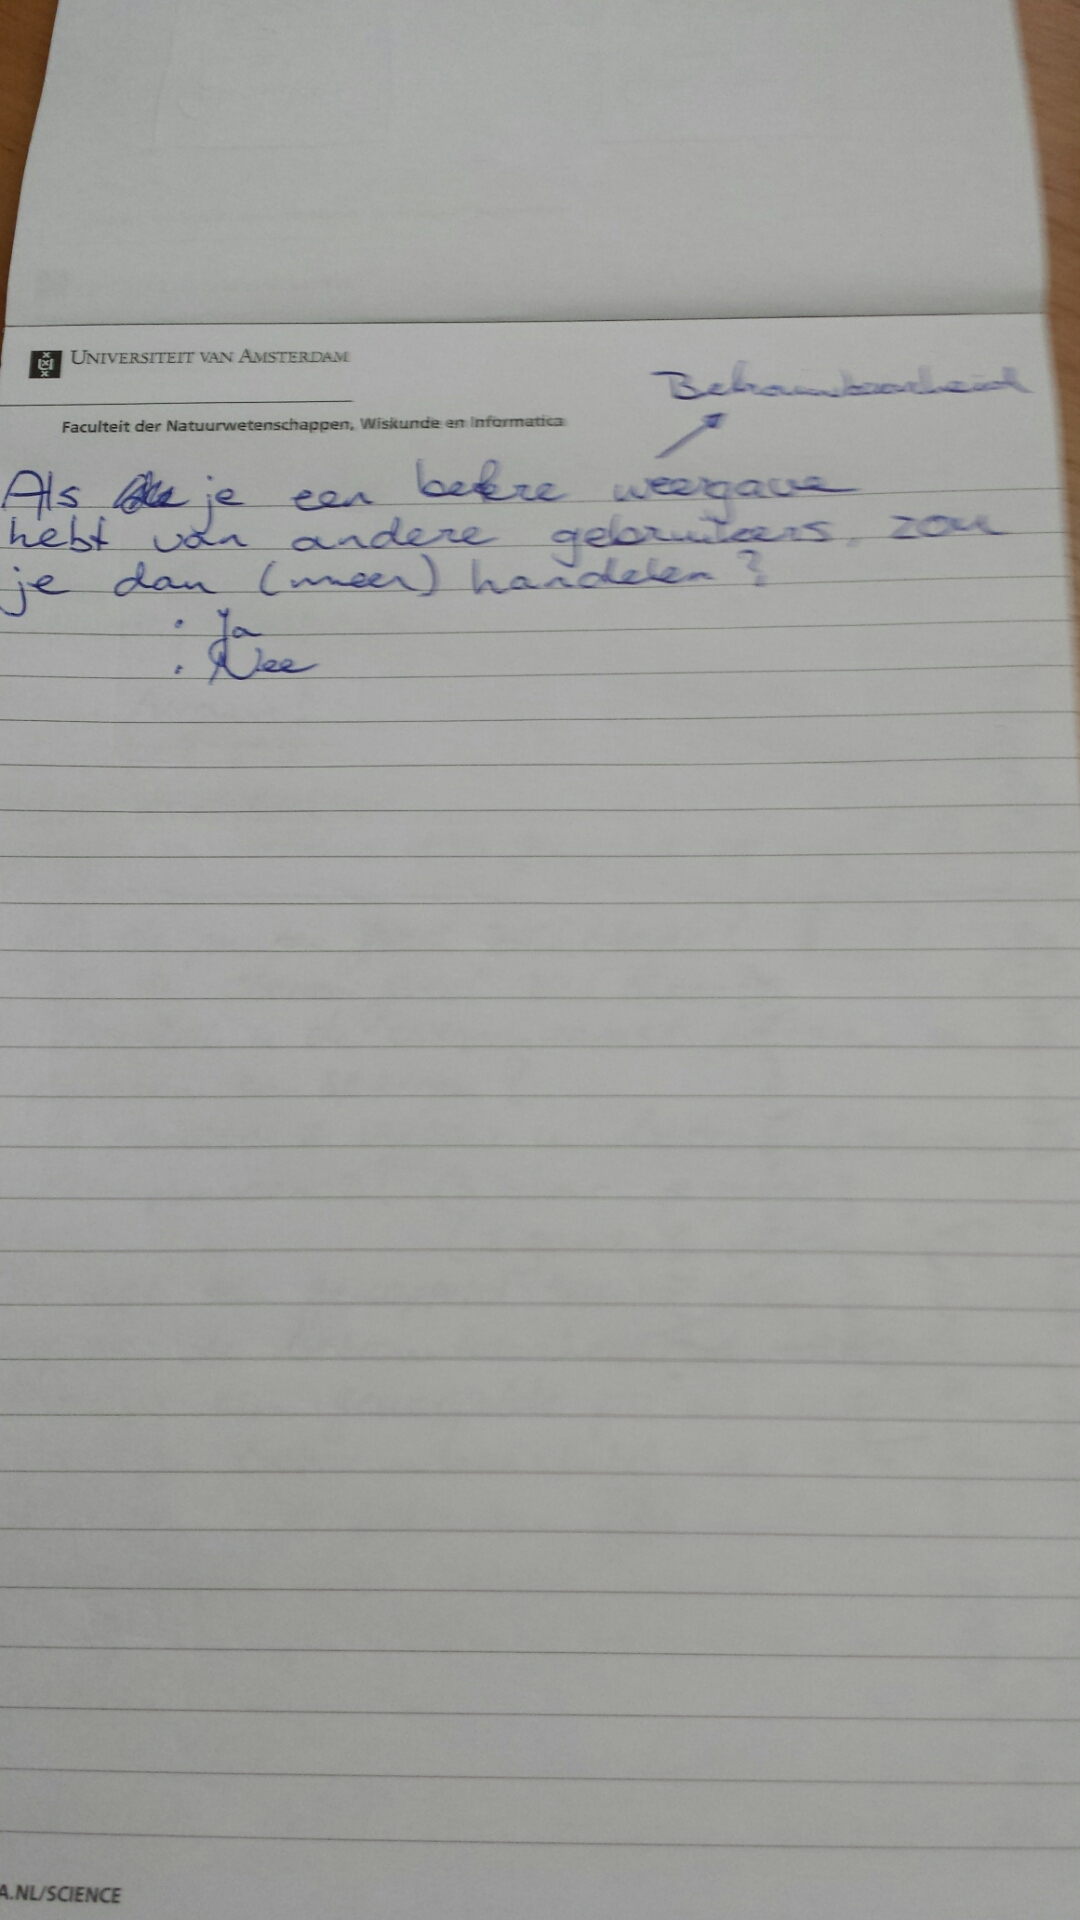 UNIVERSITEIT VAN AMSTERDAM
Faculteit der Natuurwetenschappen, Wiskunde en Informatica
Als je een betere weergave
hebt van andere gebruikers, zou
je dan (meer) handelen?
· Ja
· Nee
A.NL/SCIENCE